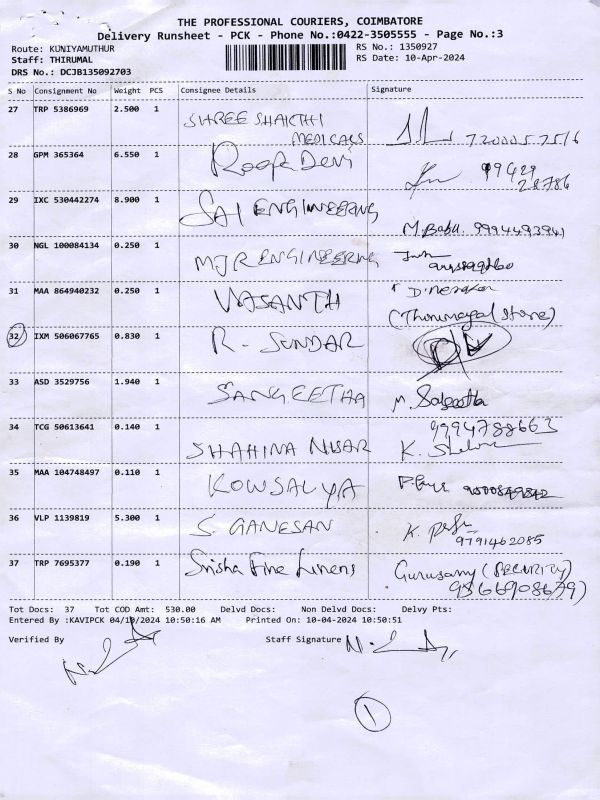 THE PROFESSIONAL COURIERS, COIMBATORE
Delivery Runsheet - PCK - Phone No.:0422-3505555 - Page No.:3
Route: KUNIYAMUTHUR
RS No.: 1350927
Staff: THIRUMAL
RS Date: 10-Apr-2024
DRS No.: DCJB135092703
S No Consignment No Weight PCS Consignee Details Signature
27 TRP 5386969 2.500 1 SHREE SHAKTHI
MEDICALS
28 GPM 365364 6.550 1 Roopa Devi
99429
28786
29 IXC 530442274 8.900 1 SAI ENGINEERING
M. Babu. 9994493941
30 NGL 100084134 0.250 1 MJR ENGINEERING
31 MAA 864940232 0.250 1 VASANTH
(Thirumagal Store)
32 IXM 506067765 0.830 1 R. SUNDAR
33 ASD 3529756 1.940 1 SANGEETHA M. Sangeetha
34 TCG 50613641 0.140 1 SHAHINA NISAR 9994788663
K.
35 MAA 104748497 0.110 1 KOWSALYA
36 VLP 1139819 5.300 1 S. GANESAN K.
9791462085
37 TRP 7695377 0.190 1 Srisha Fine Linens Gurusamy (SECURITY)
Tot Docs: 37 Tot COD Amt: 530.00 Delvd Docs: Non Delvd Docs: Delvy Pts:
Entered By :KAVIPCK 04/10/2024 10:50:16 AM Printed On: 10-04-2024 10:50:51
Verified By Staff Signature
1